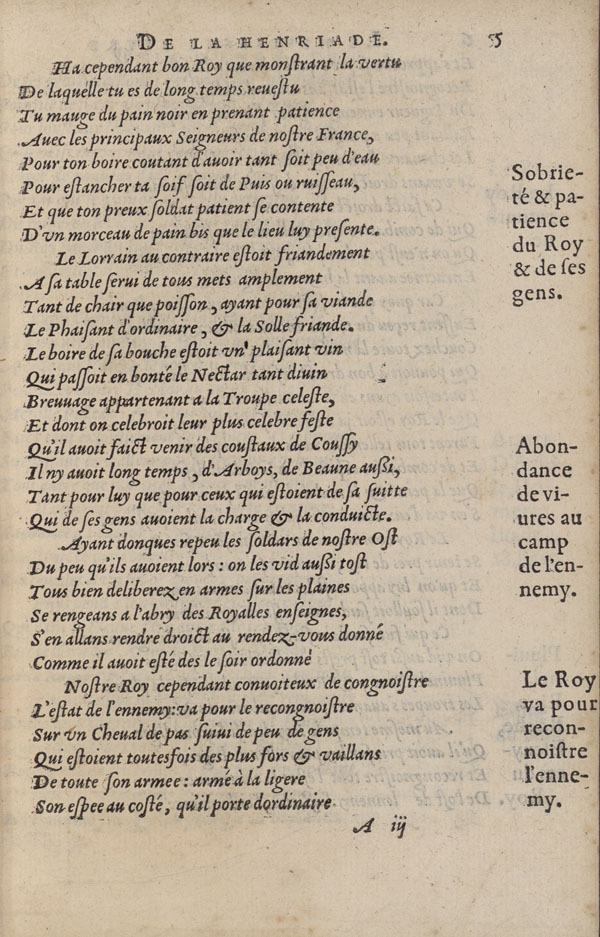 DE LA HENRIADE. 5
Ha cependant bon Roy que monſtrant la vertu
De laquelle tu es de long temps reueſtu
Tu mauge du pain noir en prenant patience
Auec les principaux Seigneurs de noſtre France,
Pour ton boire coutant d'auoir tant ſoit peu d'eau
Pour eſtancher ta ſoif ſoit de Puis ou ruiſſeau,
Et que ton preux ſoldat patient ſe contente
D'vn morceau de pain bis que le lieu luy preſente.
Sobrie-
té & pa-
tience
du Roy
& de ſes
gens.
Le Lorrain au contraire eſtoit friandement
A ſa table ſerui de tous mets amplement
Tant de chair que poiſſon, ayant pour ſa viande
Le Phaiſant d'ordinaire, & la Solle friande.
Le boire de ſa bouche eſtoit vn' plaiſant vin
Qui paſſoit en bonté le Nectar tant diuin
Breuuage appartenant a la Troupe celeſte,
Et dont on celebroit leur plus celebre feſte
Qu'il auoit faict venir des couſtaux de Couſſy
Il ny auoit long temps, d'Arboys, de Beaune auſsi,
Tant pour luy que pour ceux qui eſtoient de ſa ſuitte
Qui de ſes gens auoient la charge & la conduicte.
Abon-
dance
de vi-
ures au
camp
de l'en-
nemy.
Ayant donques repeu les ſoldars de noſtre Oſt
Du peu qu'ils auoient lors : on les vid auſsi toſt
Tous bien deliberez en armes ſur les plaines
Se rengeans a l'abry des Royalles enſeignes,
S'en allans rendre droict au rendez-vous donné
Comme il auoit eſté des le ſoir ordonné
Noſtre Roy cependant conuoiteux de congnoiſtre
L'eſtat de l'ennemy: va pour le recongnoiſtre
Sur vn Cheual de pas ſuiui de peu de gens
Qui eſtoient toutesfois des plus fors & vaillans
De toute ſon armee : armé à la ligere
Son eſpee au coſté, qu'il porte dordinaire
Le Roy
va pour
recon-
noiſtre
l'enne-
my.
A iij